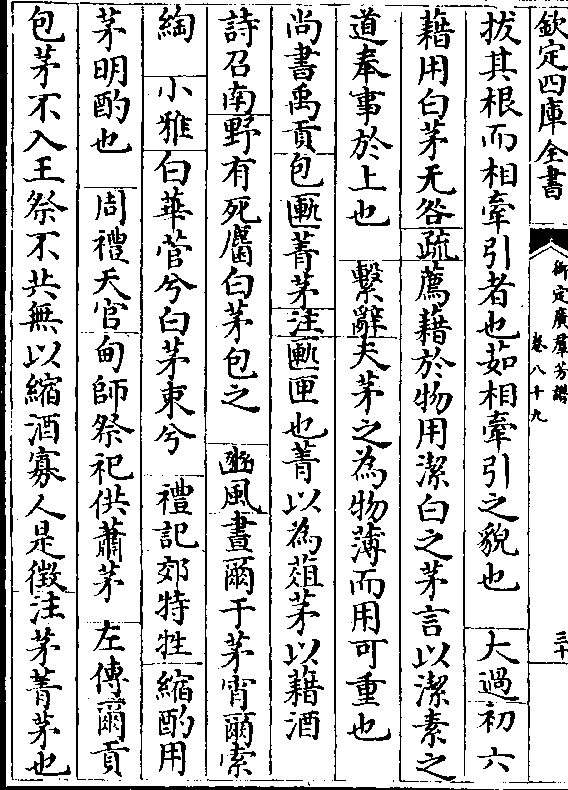 欽定四庫全書
御定廣羣芳譜
卷八十九
三十
拔其根而相牽引者也茹相牽引之貌也　大過初六
藉用白茅无咎疏薦藉於物用潔白之茅言以潔素之
道奉事於上也　繫辭夫茅之為物薄而用可重也
尚書禹貢包匭菁茅注匭匣也菁以為葅茅以藉酒
詩召南野有死麕白茅包之　豳風晝爾于茅宵爾索
綯　小雅白華菅兮白茅束兮　禮記郊特牲縮酌用
茅明酌也　周禮天官甸師祭祀供蕭茅　左傳爾貢
包茅不入王祭不共無以縮酒寡人是徵注茅菁茅也